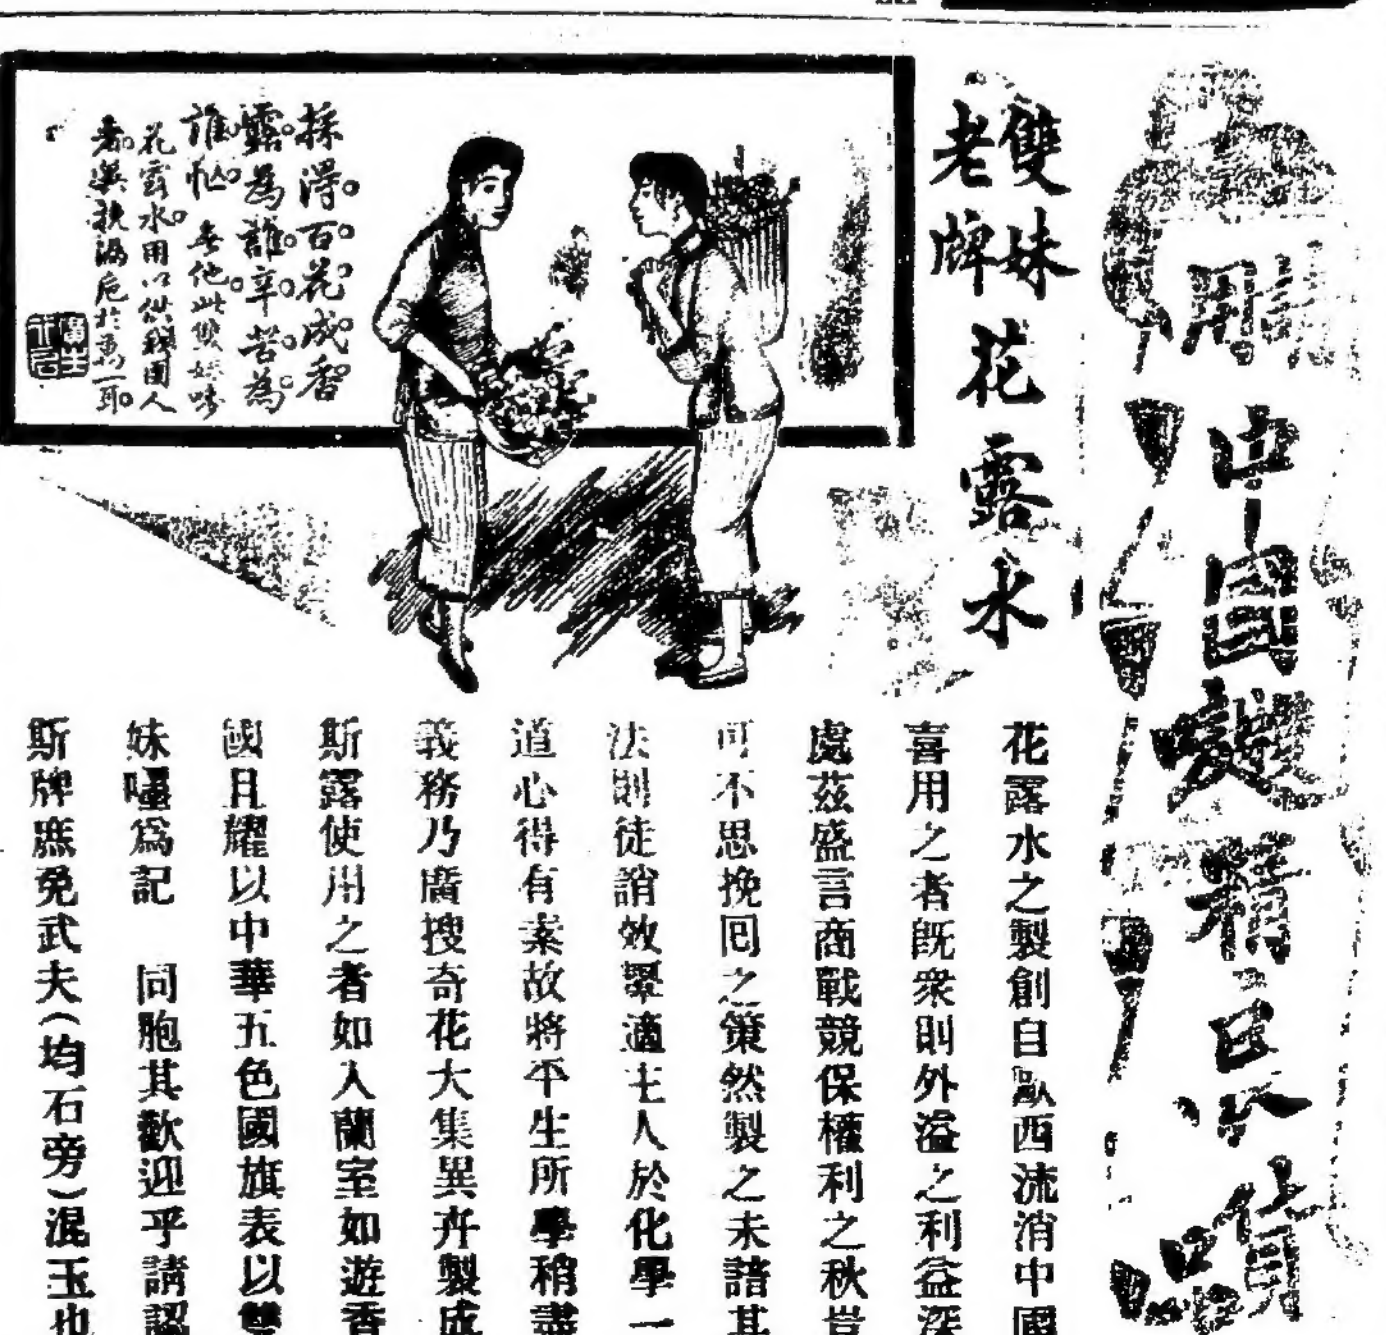 用中國製精良貨品
雙妹
老牌
花露水
採得百花成香
露為誰辛苦為
誰忙 無他此雙妹嘜
花露水用以供我國人
者與挽漏卮於萬一耳
廣生
花露水之製創自歐西流消中國
喜用之者旣衆則外溢之利益深
處茲盛言商戰競保權利之秋豈
可不思挽囘之策然製之未諳其
法則徒誚效顰適主人於化學一
道心得有素故將平生所學稍盡
義務乃廣搜奇花大集異卉製成
斯露使用之者如入蘭室如遊香
國且耀以中華五色國旗表以雙
妹嚜爲記 同胞其歡迎乎請認
斯牌庶免武夫(均石旁)混玉也